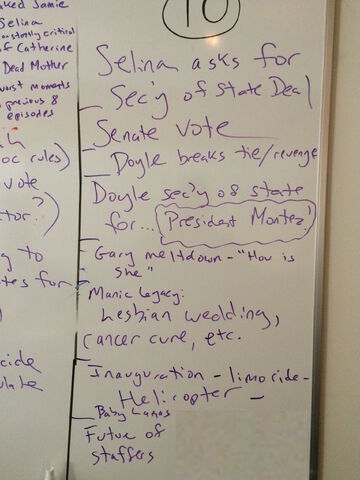 aked Jamie
Selina
constantly critical
of Catherine
Dead Mother
worst moments
previous 8
episodes
oc rules)
vote
ctor?)
ng to
tes for
cide
ulate
10
Selina asks for
Sec'y of State Deal
Senate Vote
Doyle breaks tie/revenge
Doyle sec'y of state
for... President Montez!
Gary meltdown - "How is
she"
Manic Legacy:
Lesbian wedding,
cancer cure, etc.
Inauguration - limo ride -
Helicopter -
Baby Lamos
Future of
staffers